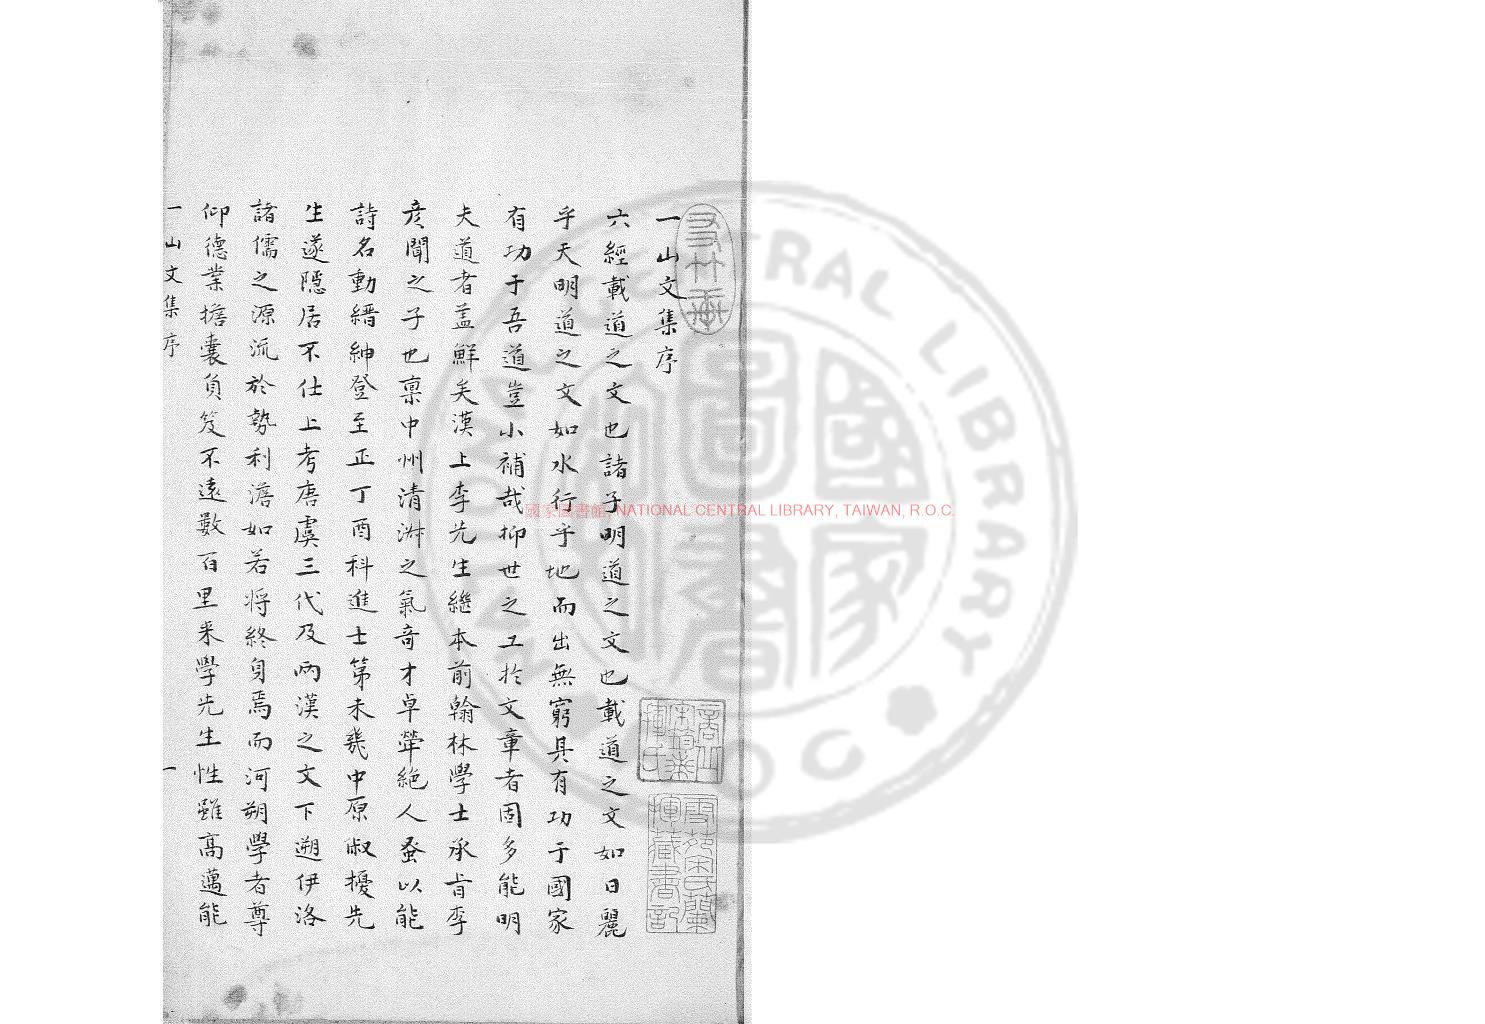 一山文集序
六經載道之文也諸子明道之文也載道之文如日麗
乎天明道之文如水行乎地而出無窮具有功于國家
有功于吾道豈小補哉抑世之工於文章者固多能明
夫道者盖鮮矣漢上李先生繼本前翰林學士承㫖李
彦聞之子也禀中州清淑之氣竒才卓犖絶人蚤以能
詩名動縉紳登至正丁酉科進士第未㡬中原俶擾先
生遂隱居不仕上考唐虞三代及兩漢之文下遡伊洛
諸儒之源流於勢利澹如若将終身焉而河朔學者尊
仰德業擔囊負笈不逺數百里来學先生性雖髙邁能
一山文集序
一
國家圖書館, NATIONAL CENTRAL LIBRARY, TAIWAN, R.O.C.
NATIONAL CENTRAL LIBRARY
ROC
國家圖書館